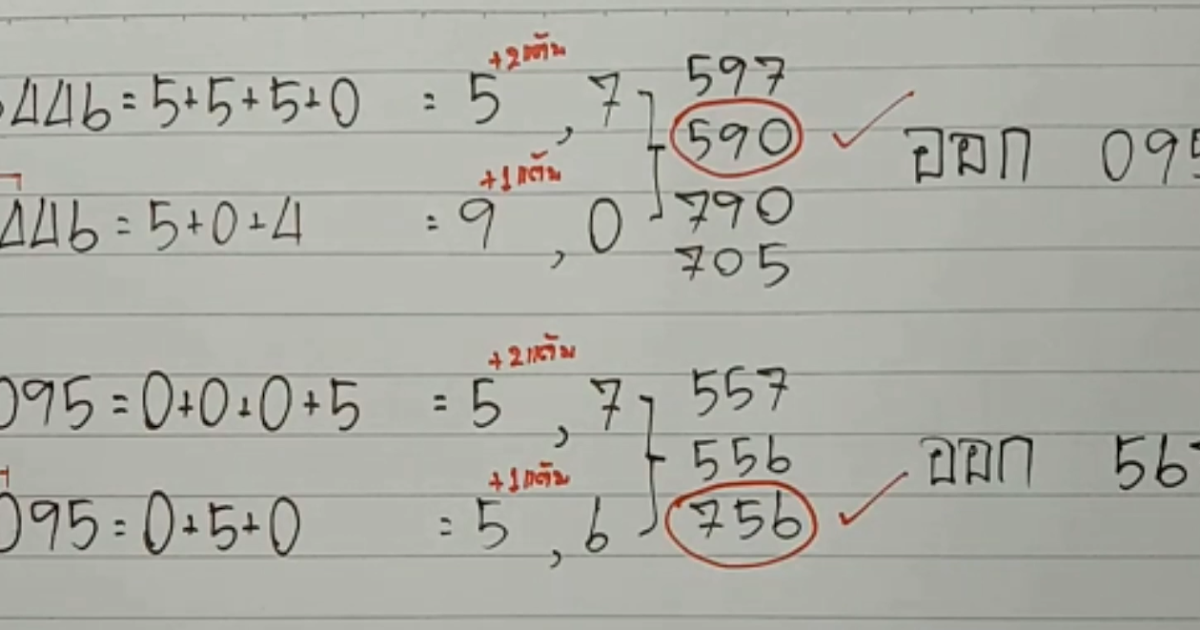 +2แต้ม 597
446 = 5+5+5+0 = 5 , 7 590 ออก 095
+1แต้ม 790
446 = 5+0+4 = 9 , 0 705
+2แต้ม 557
095 = 0+0+0+5 = 5 , 7 556 ออก 567
+1แต้ม 756
095 = 0+5+0 = 5 , 6